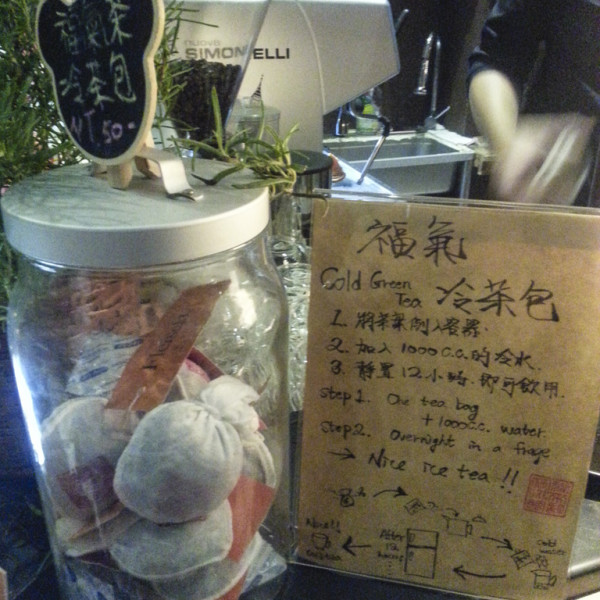 福氣茶
冷茶包
NT.50-
nuova
SIMONELLI
福氣
Cold Green
Tea 冷茶包
1. 將茶葉倒入容器.
2. 加入1000c.c.的冷水.
3. 靜置12小時.即可飲用.
Step 1. One tea bag
+1000c.c. water.
Step 2. Overnight in a fridge
→ Nice ice tea!!
Nice!!
After
12
hours
Cold
water